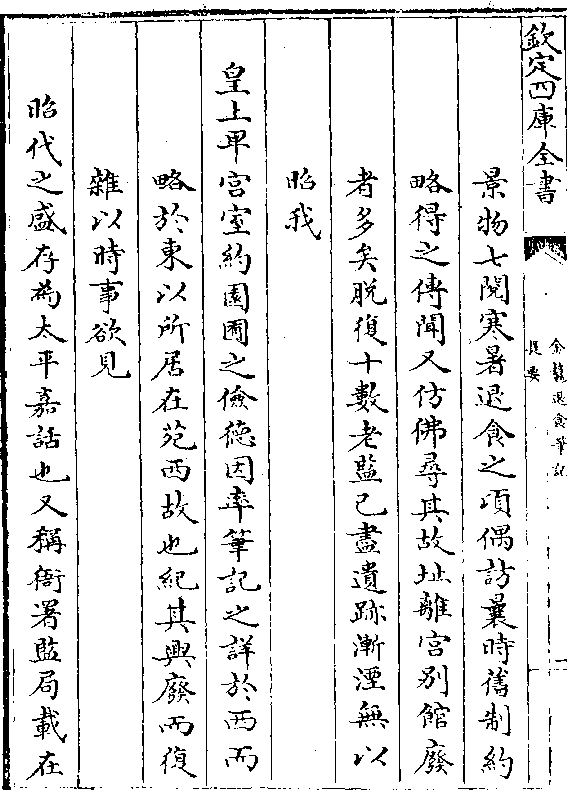 欽定四庫全書
金鰲退食筆記
提要
一
景物七閲寒暑退食之頃偶訪曩時舊制約
略得之傳聞又仿佛尋其故址離宫别館廢
者多矣脱復十數老監已盡遺跡漸湮無以
昭我
皇上卑宫室約園囿之儉德因率筆記之詳於西而
略於東以所居在苑西故也紀其興廢而復
雜以時事欲見
昭代之盛存為太平嘉話也又稱衙署監局載在